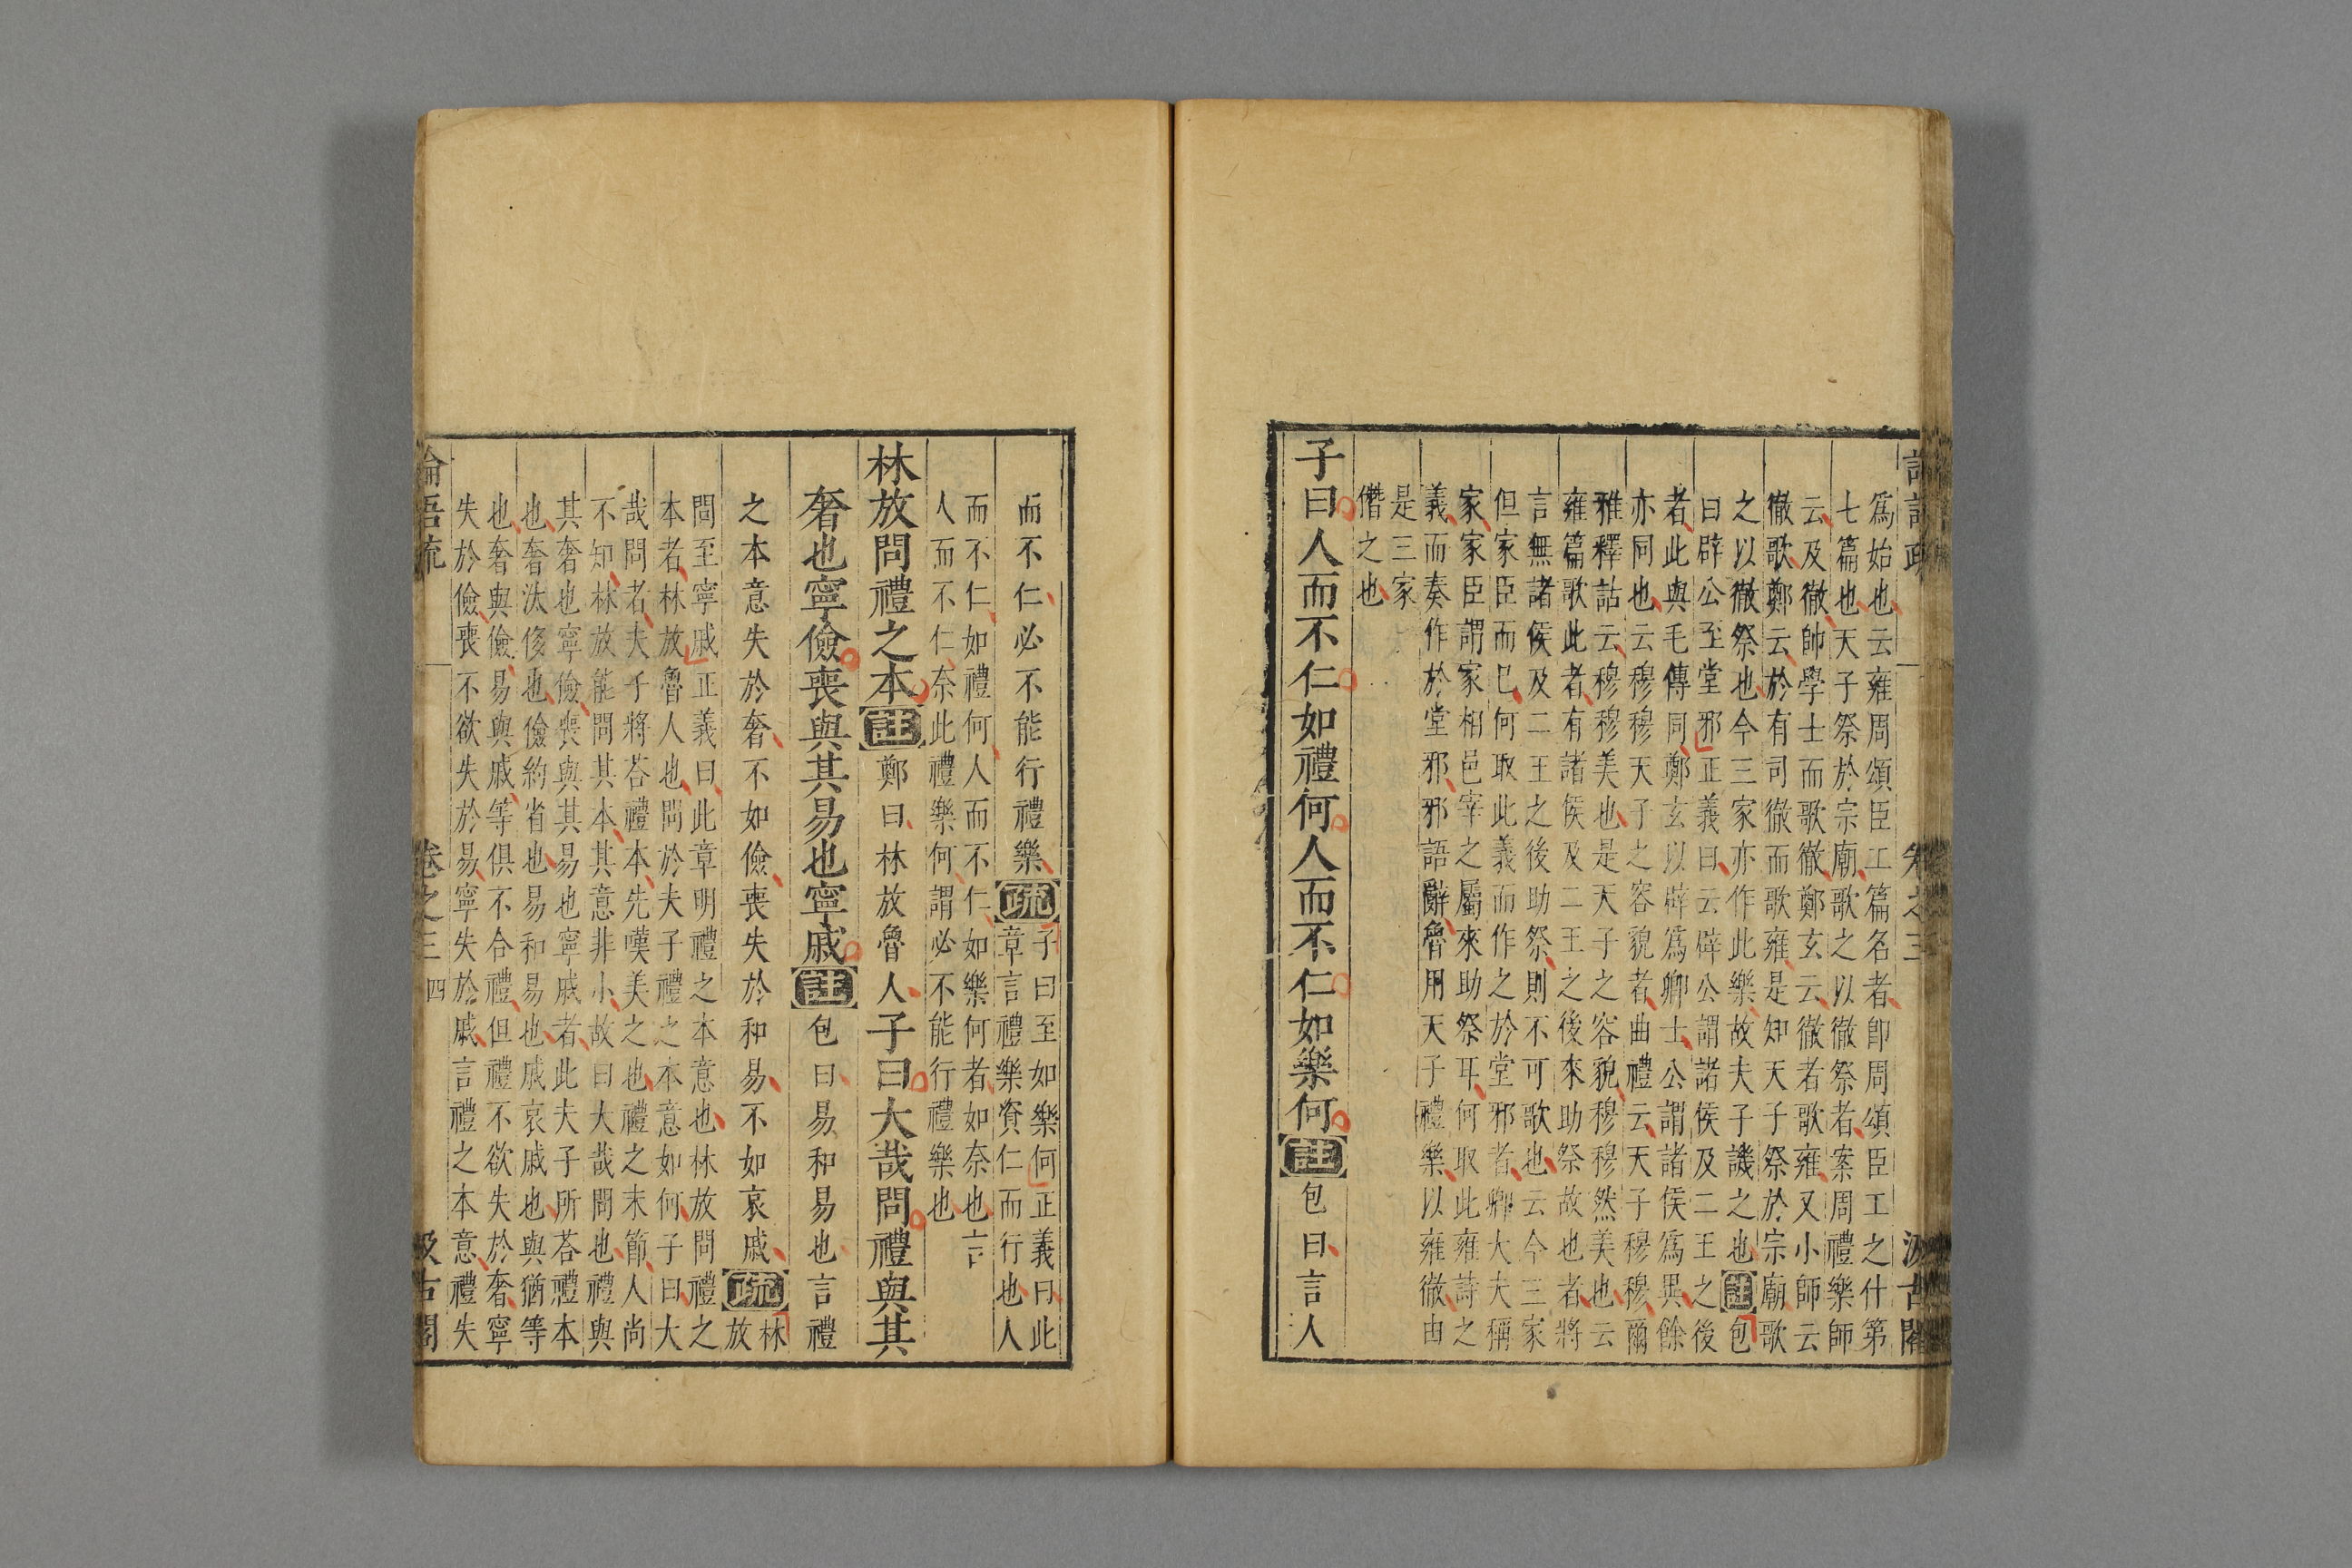 爲始也云雍周頌臣工篇名者卽周頌臣工之什第
七篇也天子祭於宗廟歌之以徹祭者案周禮樂師
云及徹帥學士而歌徹鄭玄云徹者歌雍又小師云
徹歌鄭云於有司徹而歌雍是知天子祭於宗廟歌
之以徹祭也今三家亦作此樂故夫子譏之也註包
曰辟公至堂邪正義曰云辟公謂諸侯及二王之後
者此與毛傳同鄭玄以辟爲卿士公謂諸侯爲異餘
亦同也云穆穆天子之容貌者曲禮云天子穆穆爾
雅釋詁云穆穆美也是天子之容貌穆穆然美也云
雍篇歌此者有諸侯及二王之後來助祭故也者將
言無諸侯及二王之後助祭則不可歌也云今三家
但家臣而已何取此義而作之於堂邪者卿大夫稱
家家臣謂家相邑宰之屬來助祭耳何取此雍詩之
義而奏作於堂邪邪語辭魯用天子禮樂以雍徹由
是三家
僭之也
子曰人而不仁如禮何人而不仁如樂何註包曰言人
而不仁必不能行禮樂疏子曰至如樂何正義曰此
章言禮樂資仁而行也人
而不仁如禮何人而不仁如樂何者如奈也言
人而不仁奈此禮樂何謂必不能行禮樂也
林放問禮之本註鄭曰林放魯人子曰大哉問禮與其
奢也寧儉喪與其易也寧戚註包曰易和易也言禮
之本意失於奢不如儉喪失於和易不如哀戚疏林
放
問至寧戚正義曰此章明禮之本意也林放問禮之
本者林放魯人也問於夫子禮之本意如何子曰大
哉問者夫子將荅禮本先嘆美之也禮之末節人尚
不知林放能問其本其意非小故曰大哉問也禮與
其奢也寧儉喪與其易也寧戚者此夫子所荅禮本
也奢汰侈也儉約省也易和易也戚哀戚也與猶等
也奢與儉易與戚等俱不合禮但禮不欲失於奢寧
失於儉喪不欲失於易寧失於戚言禮之本意禮失
論語疏 卷之三 四 汲古閣